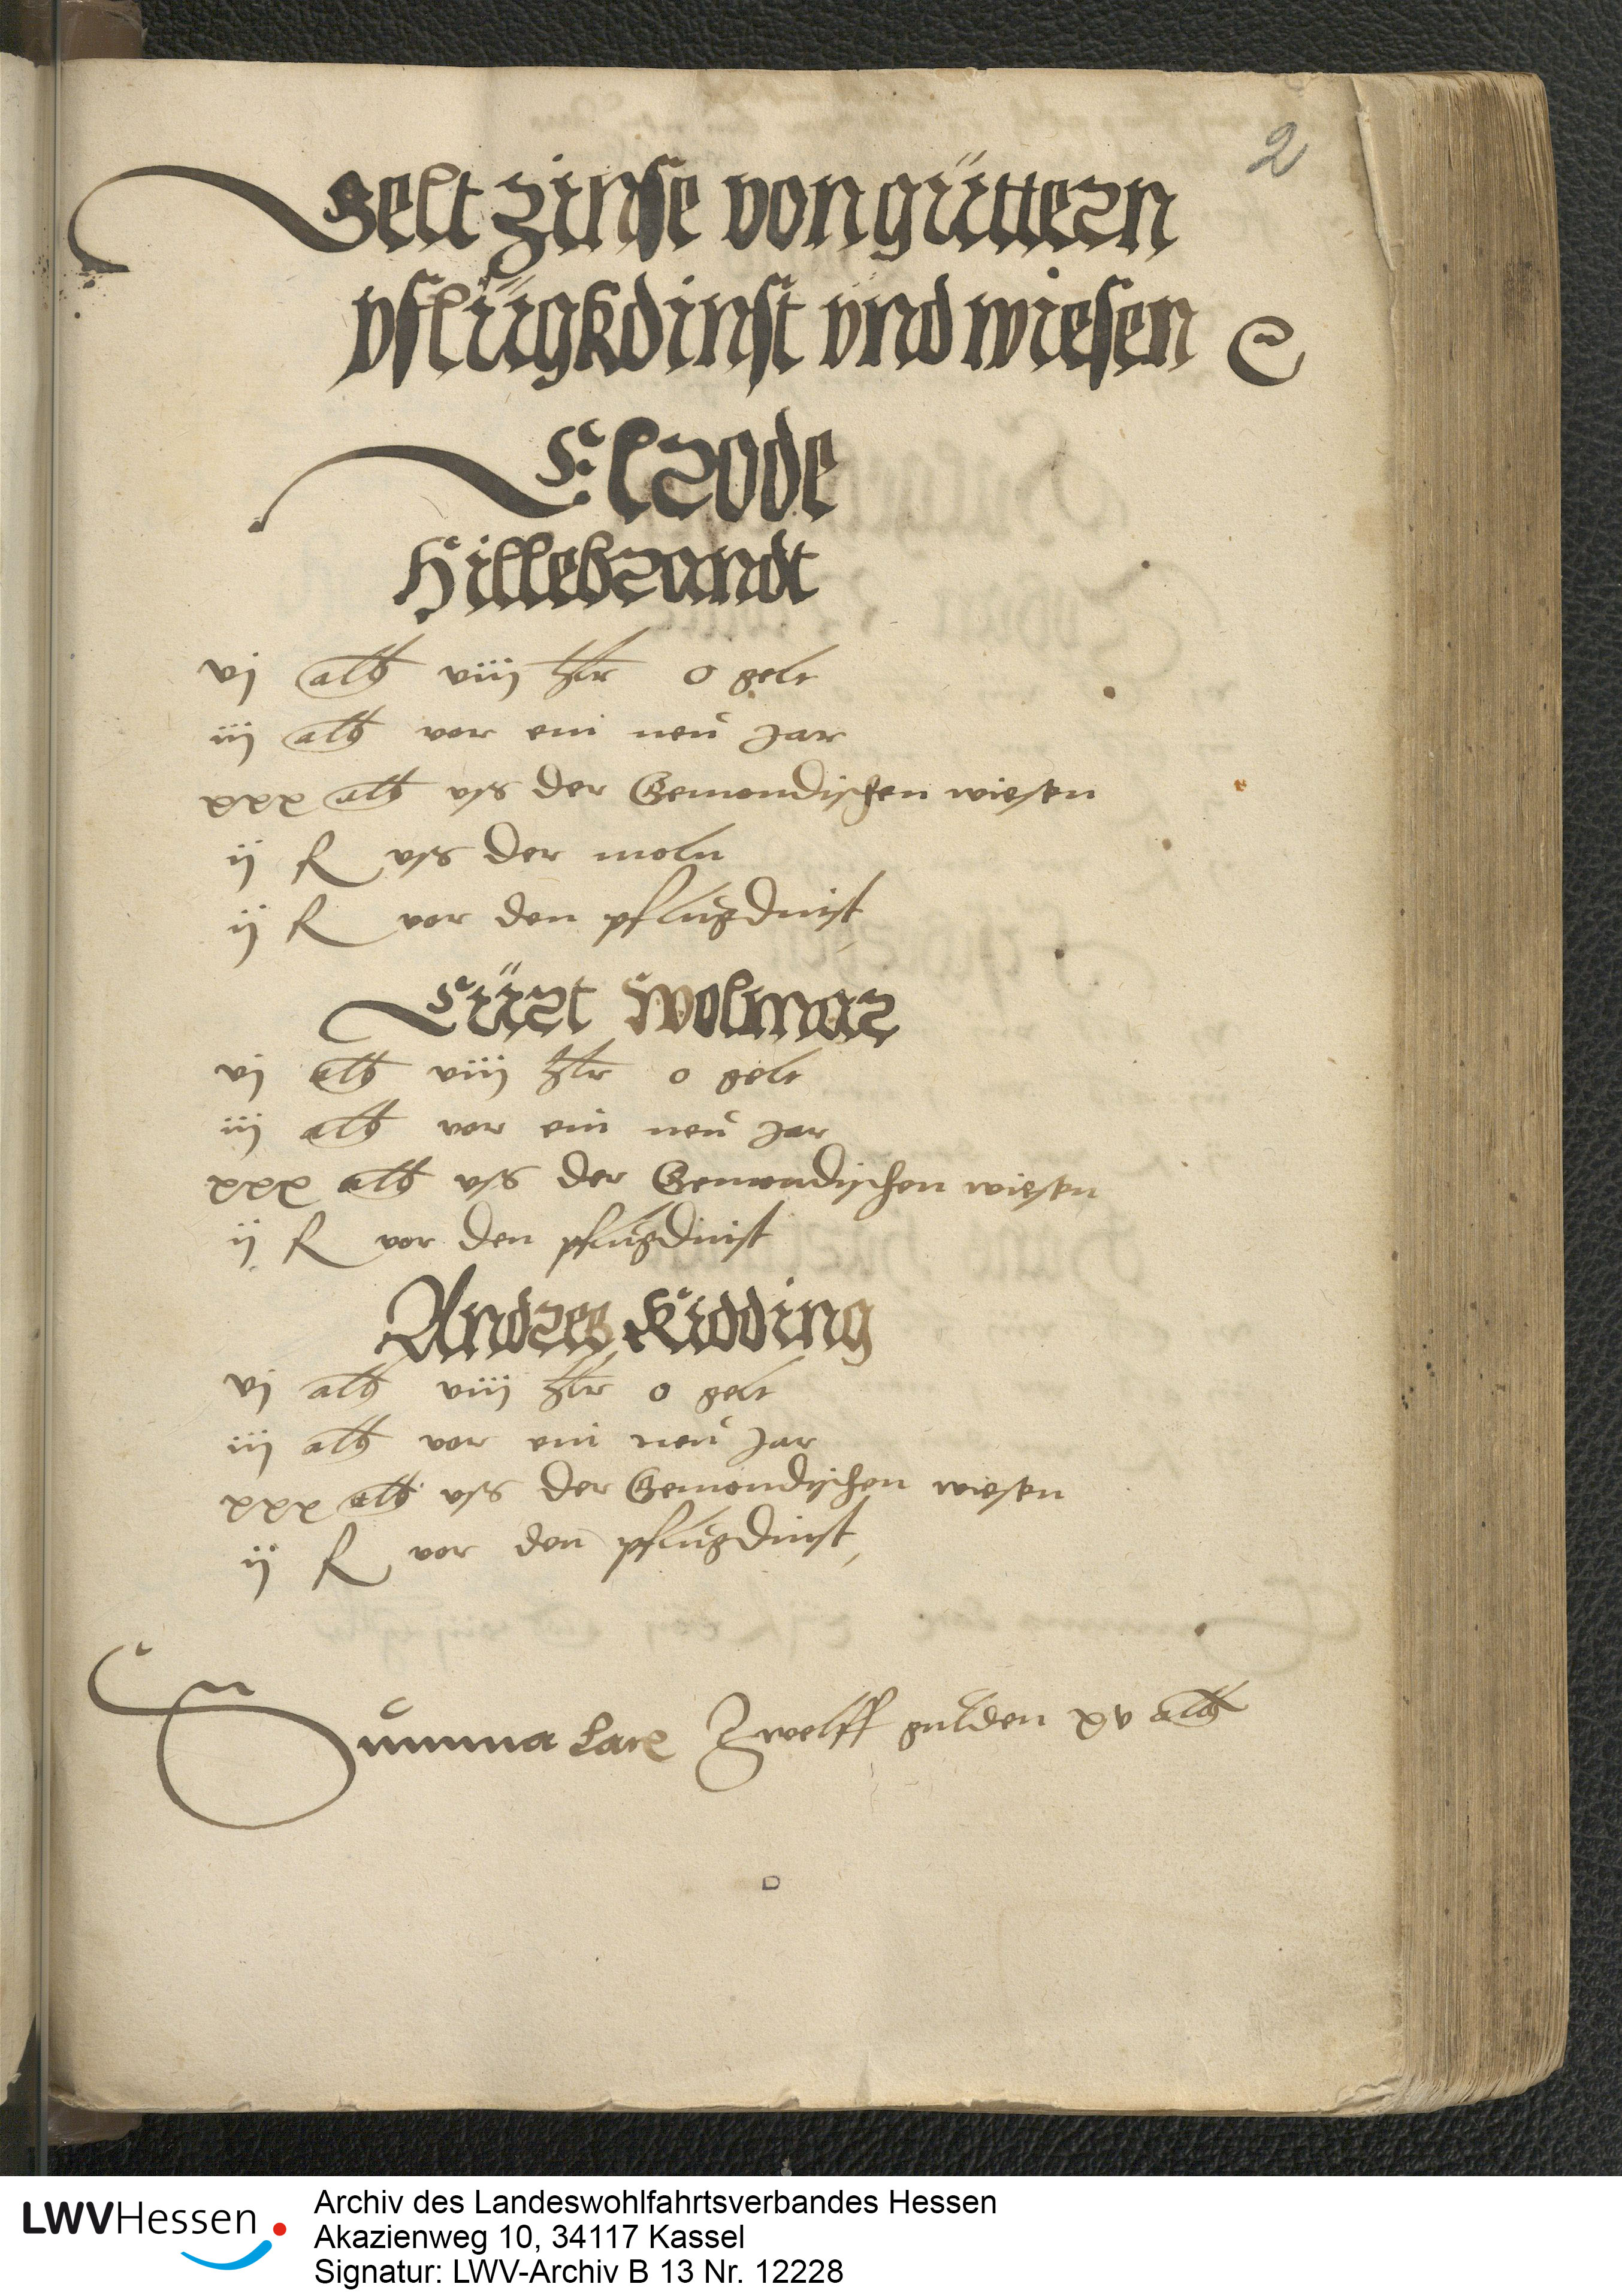 2
Gelt zinse von güttern
pflügkdinst vnd wiesen
Elrode
Hillebrandt
vj alb viij hlr o gelt
iij alb vor ein neu Jar
xxx alb vss der Gemondischen wiesen
ij fl vss der moln
ij fl vor den pflugdinst
Cürt Wolmar
vj alb viij hlr o gelt
iij alb vor ein neu Jar
xxx alb vss der Gemondischen wiesen
ij fl vor den pflugdinst
Andres Kidding
vj alb viij hlr o gelt
iij alb vor ein neu Jar
xxx alb vss der Gemondischen wiesen
ij fl vor den pflugdinst
Summa Zwelff gulden xv alb
LWVHessen
Archiv des Landeswohlfahrtsverbandes Hessen
Akazienweg 10, 34117 Kassel
Signatur: LWV-Archiv B 13 Nr. 12228